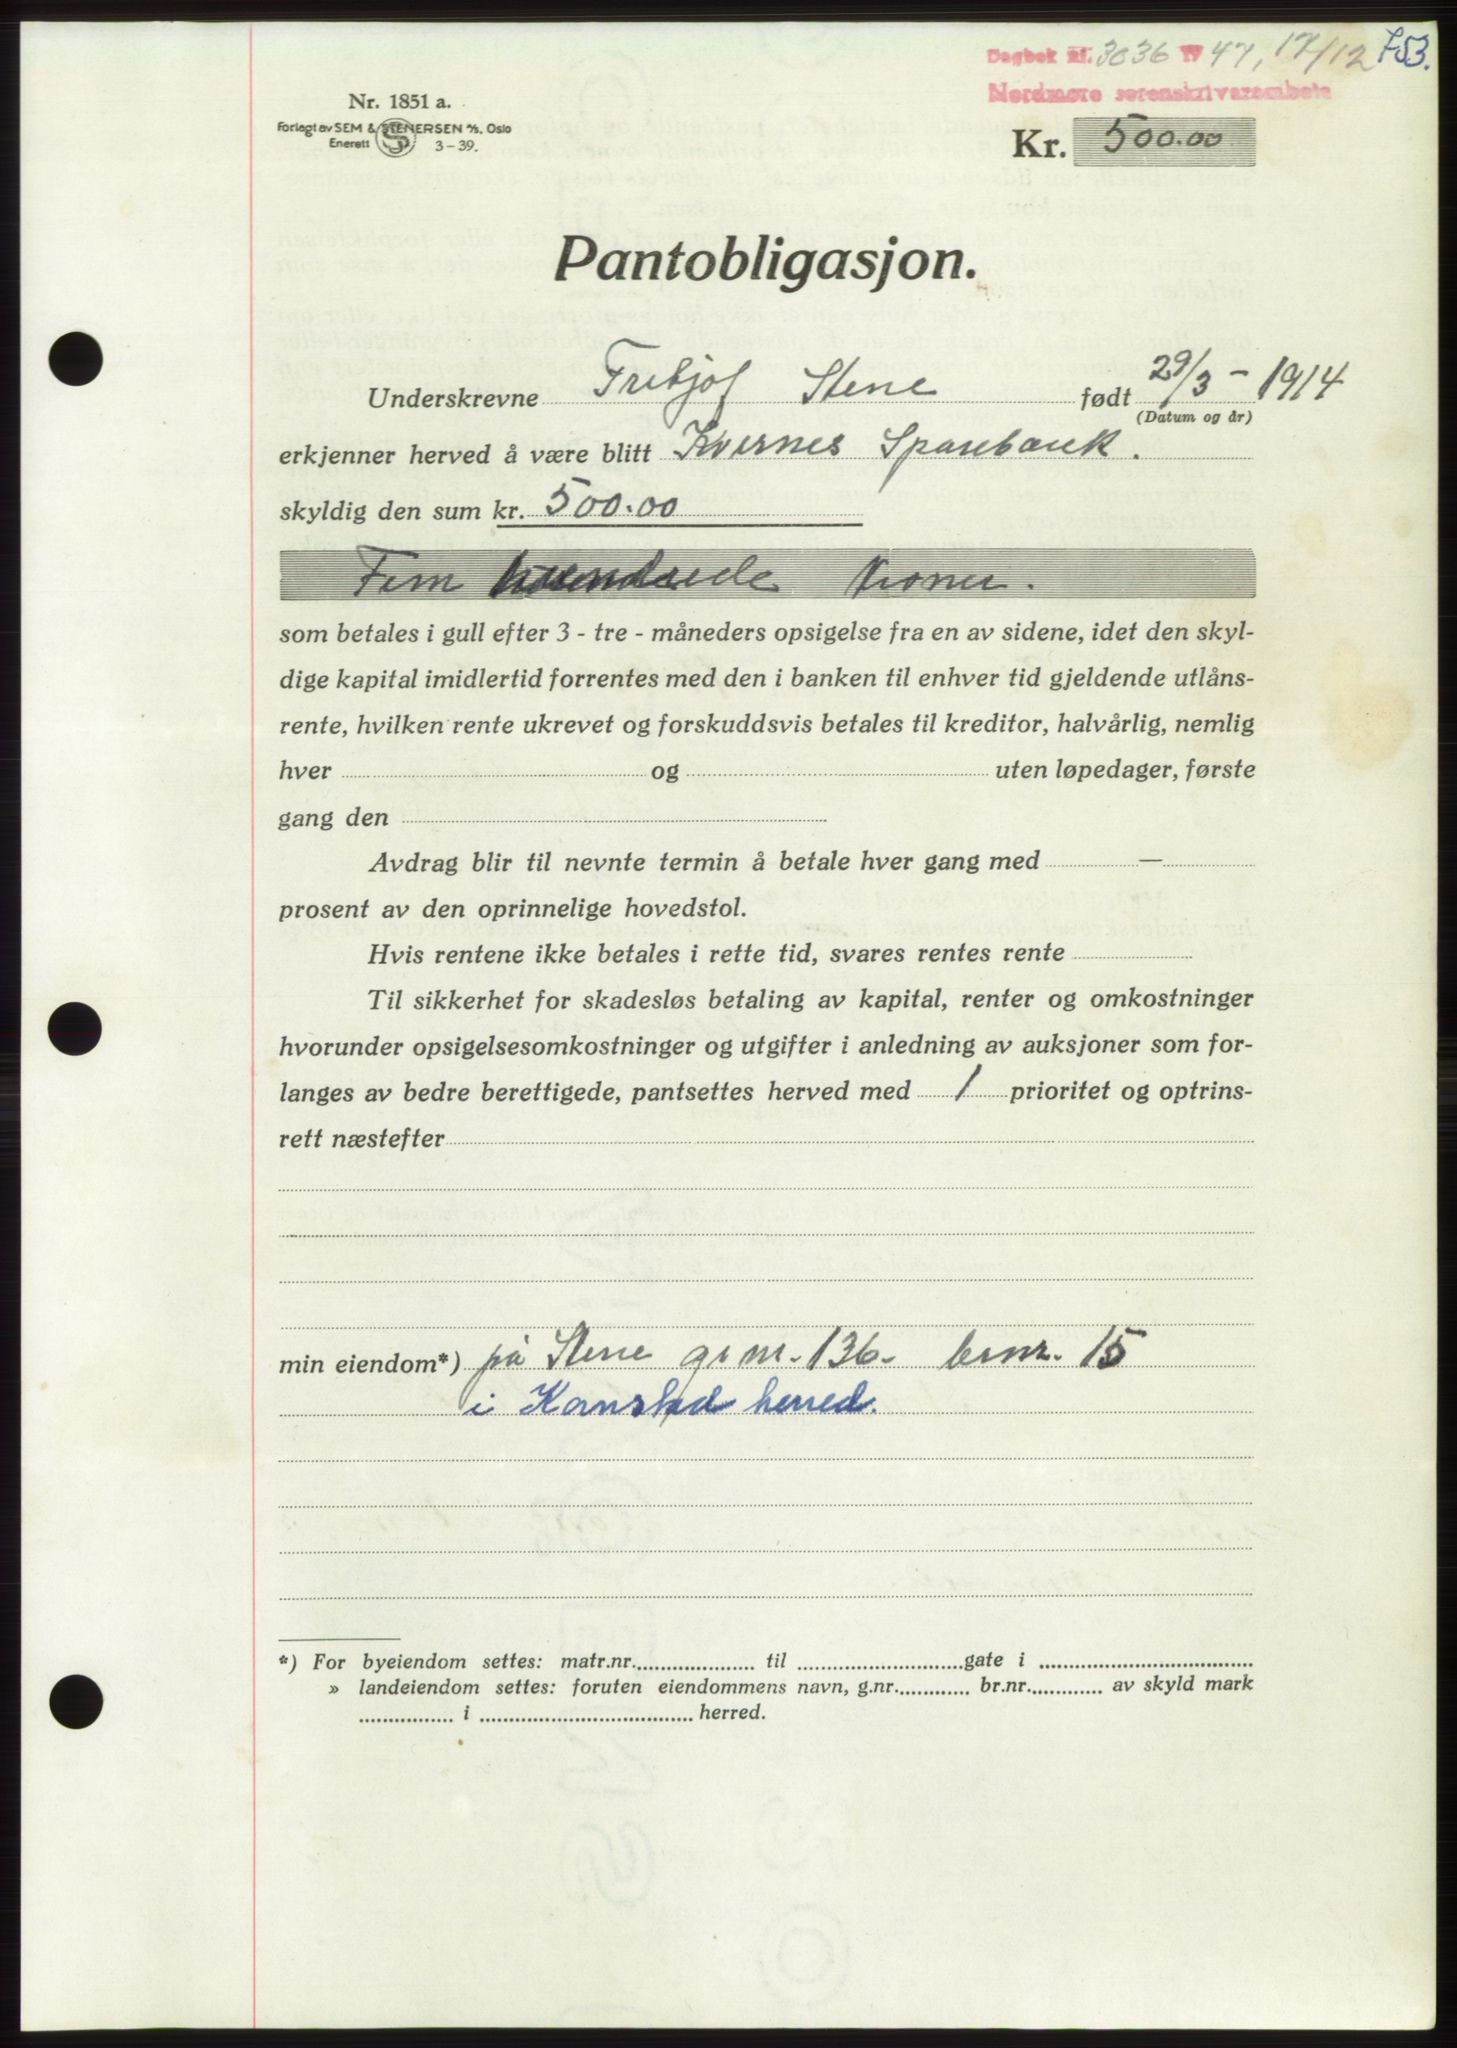 753.
Dagbok nr. 3036 19 47, 17/12
Nordmøre sorenskriverembete
Nr. 1851 a.
Forlagt av SEM & STENERSEN A/S, Oslo
Enerett 3-39.
Kr. 500.00
Pantobligasjon.
Underskrevne Fritjof Stene født 29/3 - 1914
(Datum og år)
erkjenner herved å være blitt Kvernes Sparebank.
skyldig den sum kr. 500.00
Fem hundrede kroner.
som betales i gull efter 3 - tre - måneders opsigelse fra en av sidene, idet den skyl-
dige kapital imidlertid forrentes med den i banken til enhver tid gjeldende utlåns-
rente, hvilken rente ukrevet og forskuddsvis betales til kreditor, halvårlig, nemlig
hver og uten løpedager, første
gang den
Avdrag blir til nevnte termin å betale hver gang med —
prosent av den oprinnelige hovedstol.
Hvis rentene ikke betales i rette tid, svares rentes rente
Til sikkerhet for skadesløs betaling av kapital, renter og omkostninger
hvorunder opsigelsesomkostninger og utgifter i anledning av auksjoner som for-
langes av bedre berettigede, pantsettes herved med 1 prioritet og optrins-
rett næstefter
min eiendom*) på Stene gr nr. 136. brnr. 15
i Kornstad herred.
*) For byeiendom settes: matr.nr. til gate i
» landeiendom settes: foruten eiendommens navn, g.nr. br.nr. av skyld mark
i herred.